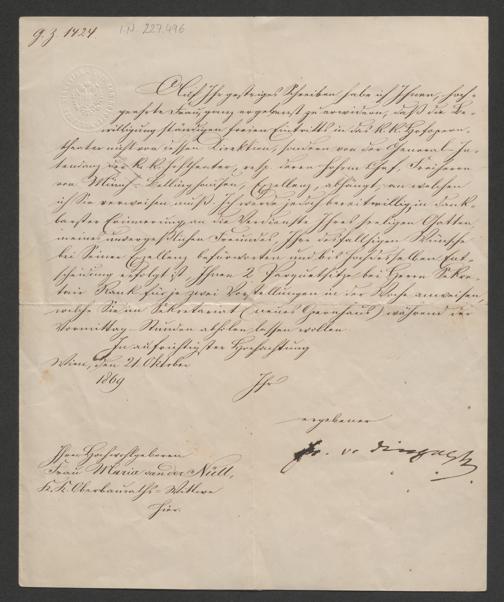 G. Z. 1424
I.N. 227.496
Auf Ihr gestriges Schreiben habe ich Ihnen, hoch-
geehrte Frau, ganz ergebenst zu erwidern, daß die Be-
willigung ständigen freien Eintritts in das k. k. Hofopern-
theater nicht von dessen Direktion, sondern von der General-In-
tendanz der k. k. Hoftheater, resp. deren hohem Chef, Freiherrn
von Münch-Bellinghausen, Exzellenz, abhängt, an welchen
ich Sie verweisen muß. Ich werde jedoch bereitwillig in dank-
barster Erinnerung an die Verdienste Ihres seeligen Gatten,
meines unvergeßlichen Freundes, Ihre desfallsigen Wünsche
bei Seiner Exzellenz befürworten und bis hochdesselben Ent-
scheidung erfolgt ist Ihnen 2 Parquetsitze bei Herrn Sekre-
tair Rank für je zwei Vorstellungen in der Woche anweisen,
welche Sie im Sekretariat (neues Opernhaus) während der
Vormittag-Stunden abholen lassen wollen.
In aufrichtigster Hochachtung
Wien, den 21. Oktober
1869
Ihr
ergebener
Fr. v. Dingelstedt
Ihrer Hochwohlgeboren
Frau Maria van der Nüll,
K. K. Oberbauraths-Wittwe
hier.